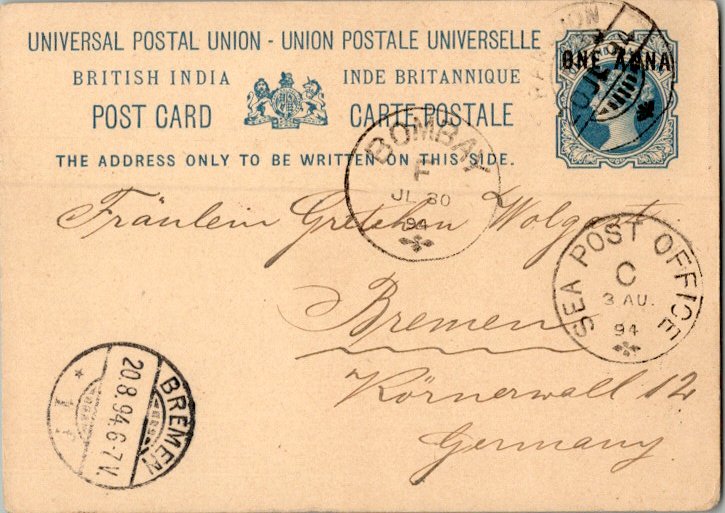 UNIVERSAL POSTAL UNION - UNION POSTALE UNIVERSELLE
BRITISH INDIA INDE BRITANNIQUE
POST CARD CARTE POSTALE
THE ADDRESS ONLY TO BE WRITTEN ON THIS SIDE.
ONE ANNA
BOMBAY
F
JL 30
94
Fräulein Gretchen Wolgast
SEA POST OFFICE
C
3 AU.
94
Bremen
Körnerwall 12
Germany
BREMEN
20.8.94.6-7V.
* 1